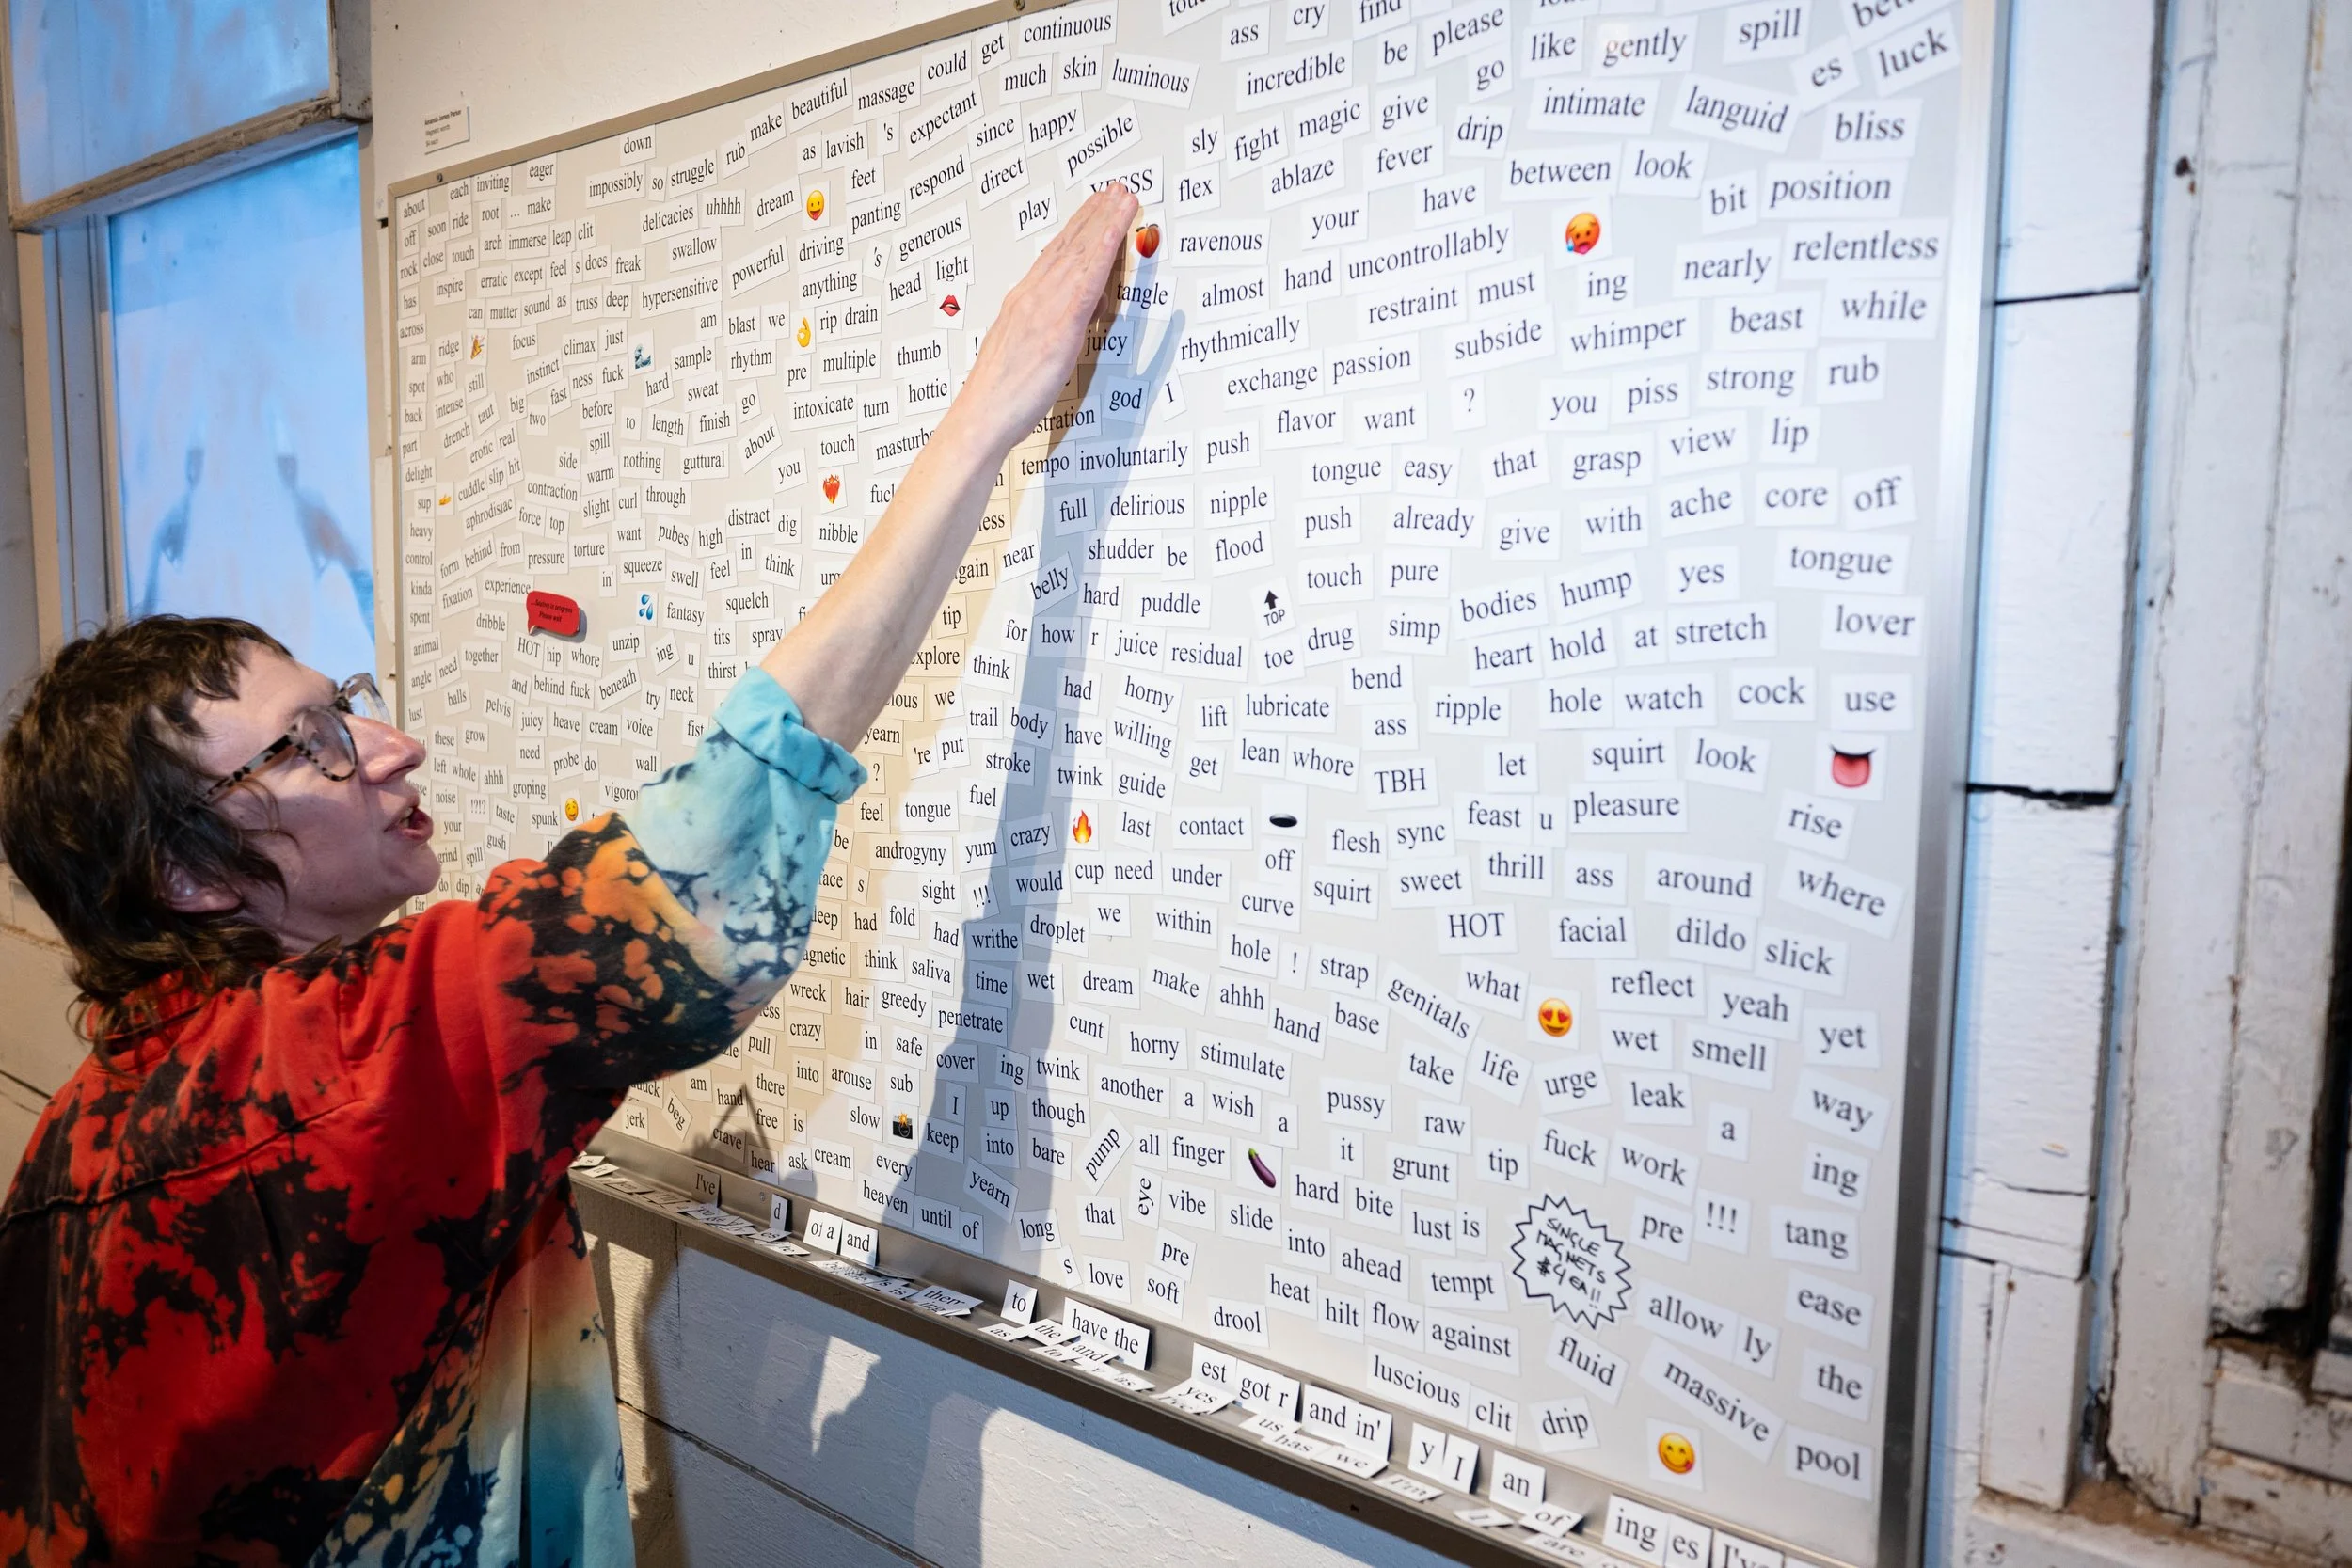 continuous
could get
make beautiful massage
much skin luminous
ass cry find
incredible be please
like gently spill
go
es luck
down
impossibly so struggle rub
as lavish 's expectant
since happy
possible
sly fight magic give
drip intimate languid bliss
each inviting eager
about
soon ride root ... make
delicacies uhhhh dream
feet respond direct
panting
play
flex ablaze fever
between look
your have
bit position
off close touch arch immerse leap clit
swallow
powerful driving 's generous
ravenous
almost hand uncontrollably
nearly relentless
rock
inspire erratic except feel s does freak
hypersensitive
anything head light
tangle
restraint must ing
while
has
can mutter sound as truss deep
am blast we rip drain
juicy rhythmically
subside whimper beast
across
arm ridge focus
instinct climax just
sample rhythm pre multiple thumb !
exchange passion
strong rub
spot who still
fast ness fuck hard sweat
intoxicate turn hottie
god I
flavor want ? you piss
back intense taut big two before to length finish go
part drench erotic real
spill
nothing guttural about
touch
tempo involuntarily push
tongue easy that grasp view lip
delight
side warm
you
cuddle slip hit
contraction slight curl through
full delirious nipple
push already give with ache core off
sup
aphrodisiac force top
want pubes high distract dig nibble
heavy
form behind from pressure torture
in' squeeze swell feel in think
near shudder be flood
touch pure
tongue
control
kinda
fixation experience
fantasy squelch
belly hard puddle
TOP
bodies hump yes
spent
dribble
HOT hip whore unzip
tits spray
tip
for how r juice residual toe drug simp
heart hold at stretch lover
animal
together
ing u thirst
explore think
angle need
and behind fuck beneath try neck
we
had horny
lift lubricate
bend
ripple
hole watch cock use
lust balls pelvis juicy heave cream voice
yearn
trail body have willing
ass
these grow need
probe do wall
? 're put
stroke
get lean whore
TBH let squirt look
left whole ahhh groping
twink guide
noise !?!? taste spunk
feel tongue fuel
crazy last contact
flesh sync feast u pleasure rise
your
be androgyny yum
grind spill gush
off
do dip
s sight !!! would cup need under
squirt sweet thrill ass around where
far
had fold had writhe droplet we within curve
HOT facial dildo slick
think saliva time wet dream make ahhh
hole ! strap genitals what
reflect yeah yet
wreck hair greedy penetrate
hand base
crazy in safe cover
cunt horny stimulate
wet smell
pull
ing twink
take life urge leak way
am there into arouse sub
another a wish a
pussy raw
a
jerk beg
hand free is slow
I up though
crave hear ask cream every
keep into bare pump all finger
it grunt tip fuck work ing
heaven until of yearn
eye vibe slide
hard bite lust is
SINGLE MAGNETS $4 EA!!
pre !!! tang
long that
pre
into ahead tempt
s love soft
drool
heat hilt flow against
allow ly ease
luscious clit drip
fluid massive the
pool
I've
d
of a and
them
to
the
have the
and
as
est got r
and in'
yes
us
has
we
I'm
y I
an
of
are
ing es I've